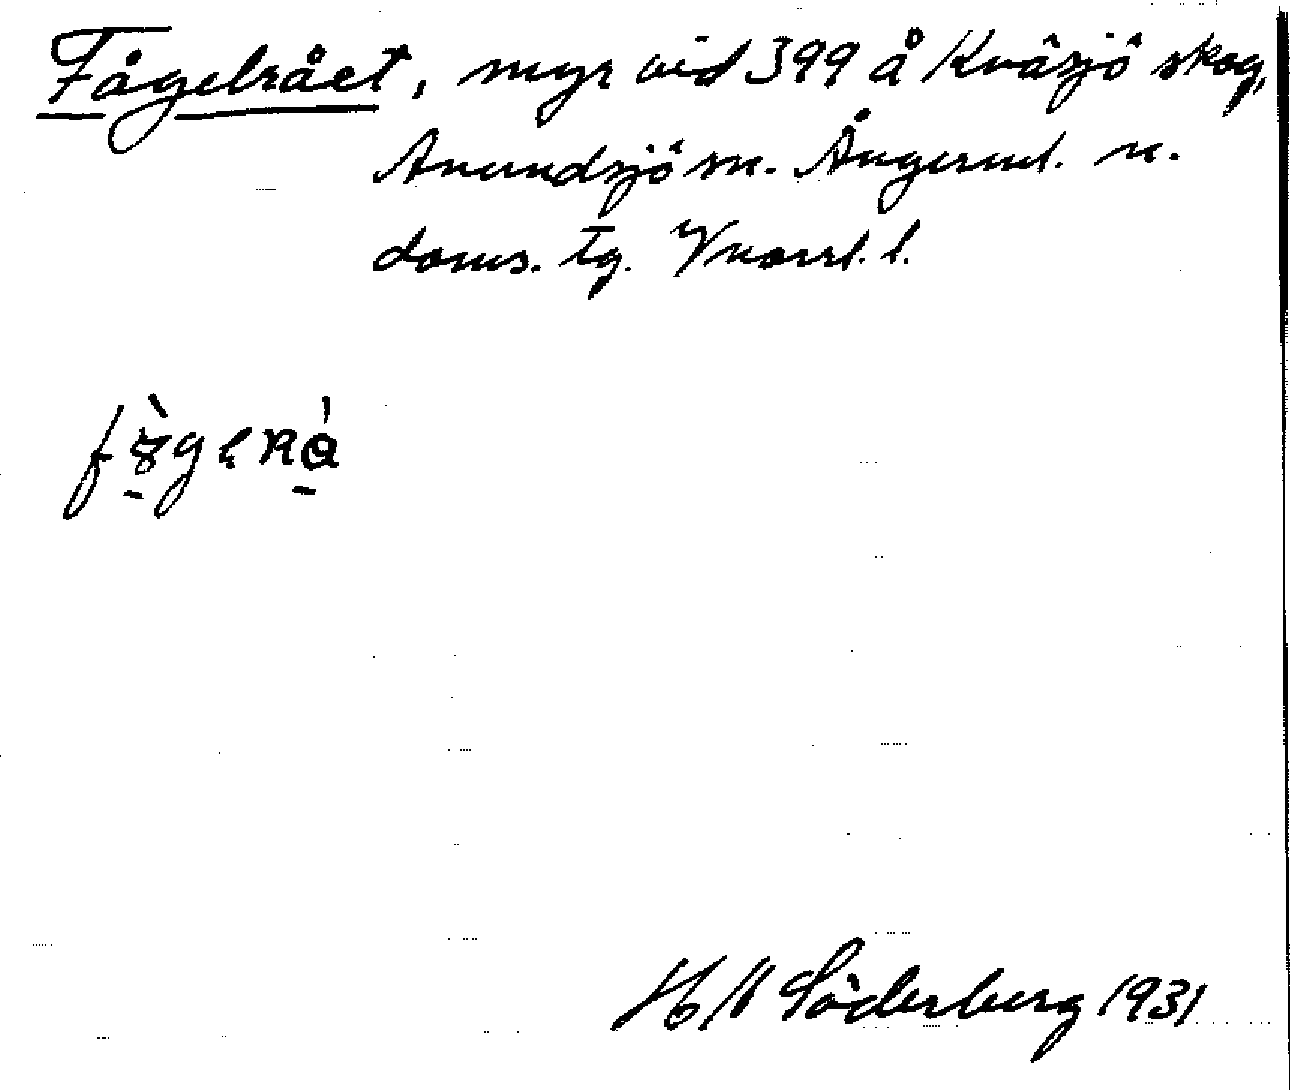 Fågelrået, myr vid 399 å Kvåsjö skog,
Anundsjö sn. Ångerml. n.
doms. tg. Vnorrl. l.
H M Söderberg 1931